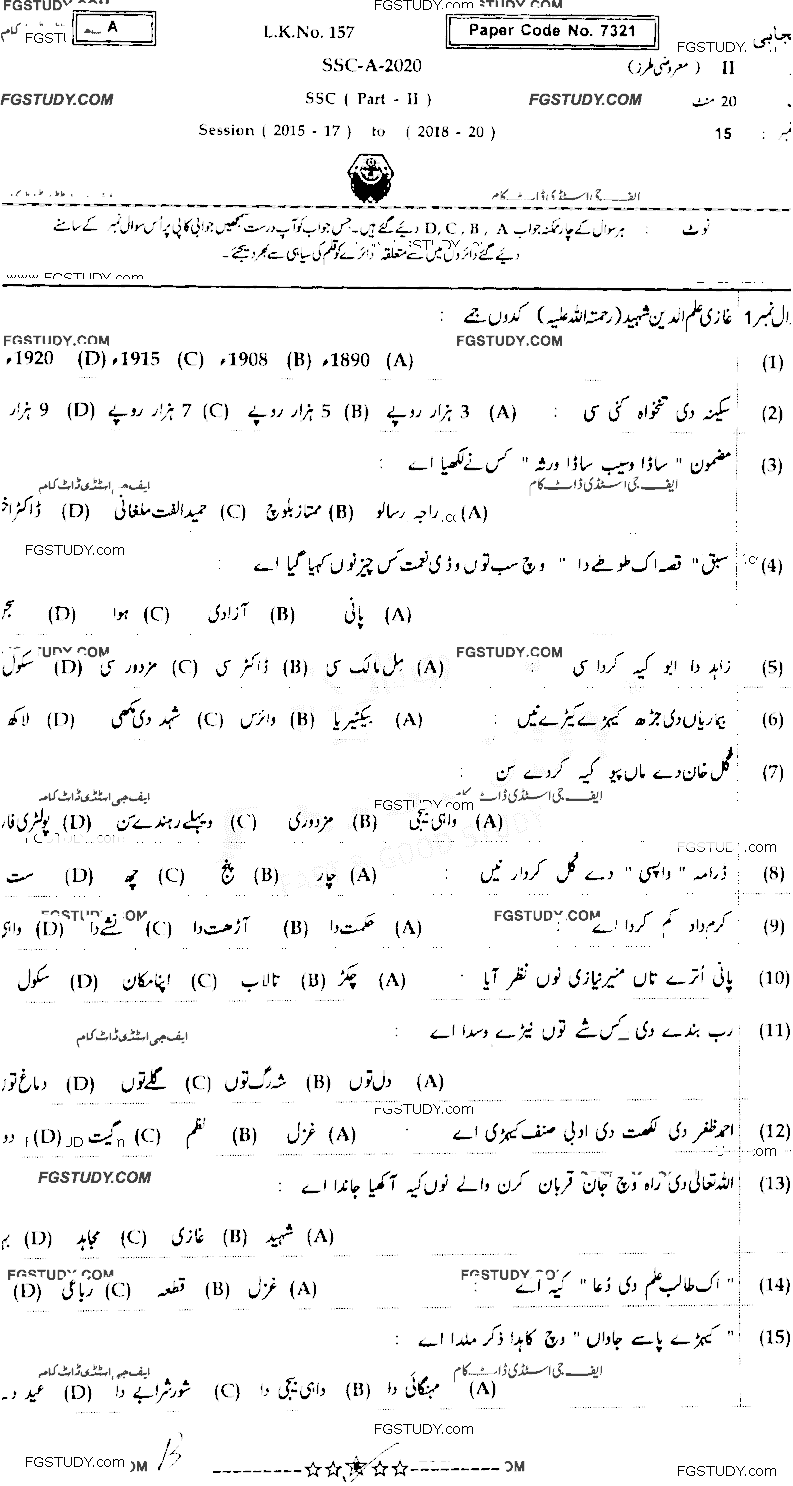 FGSTUDY.com
L.K.No. 157
Paper Code No. 7321
A
II (معروضی طرز) SSC-A-2020
20 منٹ SSC ( Part - II ) FGSTUDY.COM
15 : Session ( 2015 - 17 ) to ( 2018 - 20 )
ایف جی اسٹڈی ڈاٹ کام
نوٹ : ہر سوال کے چار ممکنہ جواب A ، B ، C ، D دیے گئے ہیں۔ جس جواب کو آپ درست سمجھیں جوابی کاپی پر اُس سوال نمبر کے سامنے
دیے گئے دائروں میں سے متعلقہ دائرے کو قلم کی سیاہی سے بھر دیجئے۔
www.FGSTUDY.com
1 غازی علم الدین شہید (رحمتہ اللہ علیہ) کدوں جمے :
FGSTUDY.COM FGSTUDY.COM
(1) (A) 1890ء (B) 1908ء (C) 1915ء (D) 1920ء
(2) سکینہ دی تنخواہ کنی سی : (A) 3 ہزار روپے (B) 5 ہزار روپے (C) 7 ہزار روپے (D) 9 ہزار
(3) مضمون " ساڈا وسیب ساڈا ورثہ " کس نے لکھیا اے :
ایف جی اسٹڈی ڈاٹ کام ایف جی اسٹڈی ڈاٹ کام
(A) راجہ رسالو (B) ممتاز بلوچ (C) حمید الفت ملغانی (D) ڈاکٹر
FGSTUDY.com
(4) سبق " قصہ اک طوطے دا " وچ سب توں وڈی نعمت کس چیز نوں کہیا گیا اے :
(A) پانی (B) آزادی (C) ہوا (D)
FGSTUDY.COM
(5) زاہد دا ابو کیہ کردا سی : (A) مِل مالک سی (B) ڈاکٹر سی (C) مزدور سی (D) سکول
(6) بیماریاں دی جڑھ کیہڑے کیڑے نیں : (A) بیکٹیریا (B) وائرس (C) شہد دی مکھی (D) لاکھ
(7) گل خان دے ماں پیو کیہ کردے سن :
ایف جی اسٹڈی ڈاٹ کام FGSTUDY.com ایف جی اسٹڈی ڈاٹ کام
(A) واہی بیجی (B) مزدوری (C) ویہلے رہندے سن (D) پولٹری
(8) ڈرامہ " واپسی " دے گل کردار نیں : (A) چار (B) پنج (C) چھ (D) ست
FGSTUDY.COM
(9) کرم داد کم کردا اے : (A) حکمت دا (B) آڑھت دا (C) نشے دا (D)
(10) پانی اُترے تاں منیر نیازی نوں نظر آیا : (A) چکڑ (B) تالاب (C) اپنا مکان (D) سکول
(11) رب بندے دی کس شے توں نیڑے وسدا اے :
ایف جی اسٹڈی ڈاٹ کام
(A) دل توں (B) شہ رگ توں (C) گلے توں (D) دماغ
FGSTUDY.com
(12) احمد ظفر دی لکھت دی ادبی صنف کیہڑی اے : (A) غزل (B) نظم (C) گیت (D)
FGSTUDY.COM
(13) اللہ تعالیٰ دی راہ وچ جان قربان کرن والے نوں کیہ آکھیا جاندا اے :
(A) شہید (B) غازی (C) مجاہد (D)
(14) " اک طالب علم دی دُعا " کیہ اے : (A) غزل (B) قطعہ (C) رباعی (D)
(15) " کیہڑے پاسے جاواں " وچ کاہدا ذکر ملدا اے :
ایف جی اسٹڈی ڈاٹ کام ایف جی اسٹڈی ڈاٹ کام
(A) مہنگائی دا (B) واہی بیجی دا (C) شور شرابے دا (D) عید
FGSTUDY.com
FGSTUDY.com FGSTUDY.com